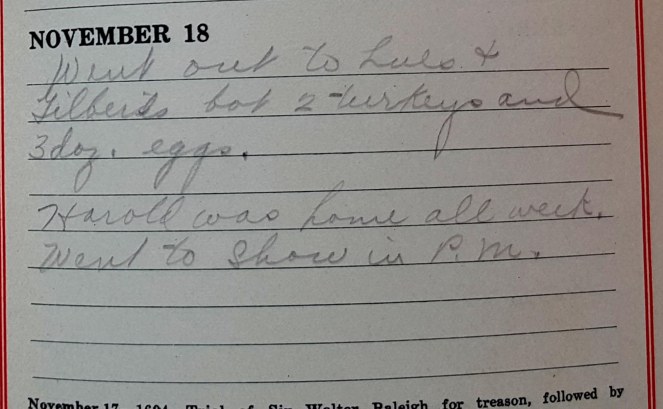 NOVEMBER 18
Went out to Lulu &
Gilberts bot 2 turkeys and
3 doz. eggs.
Harold was home all week.
Went to Show in P.M.
November 17, 1604, Trial of Sir Walter Raleigh for treason, followed by